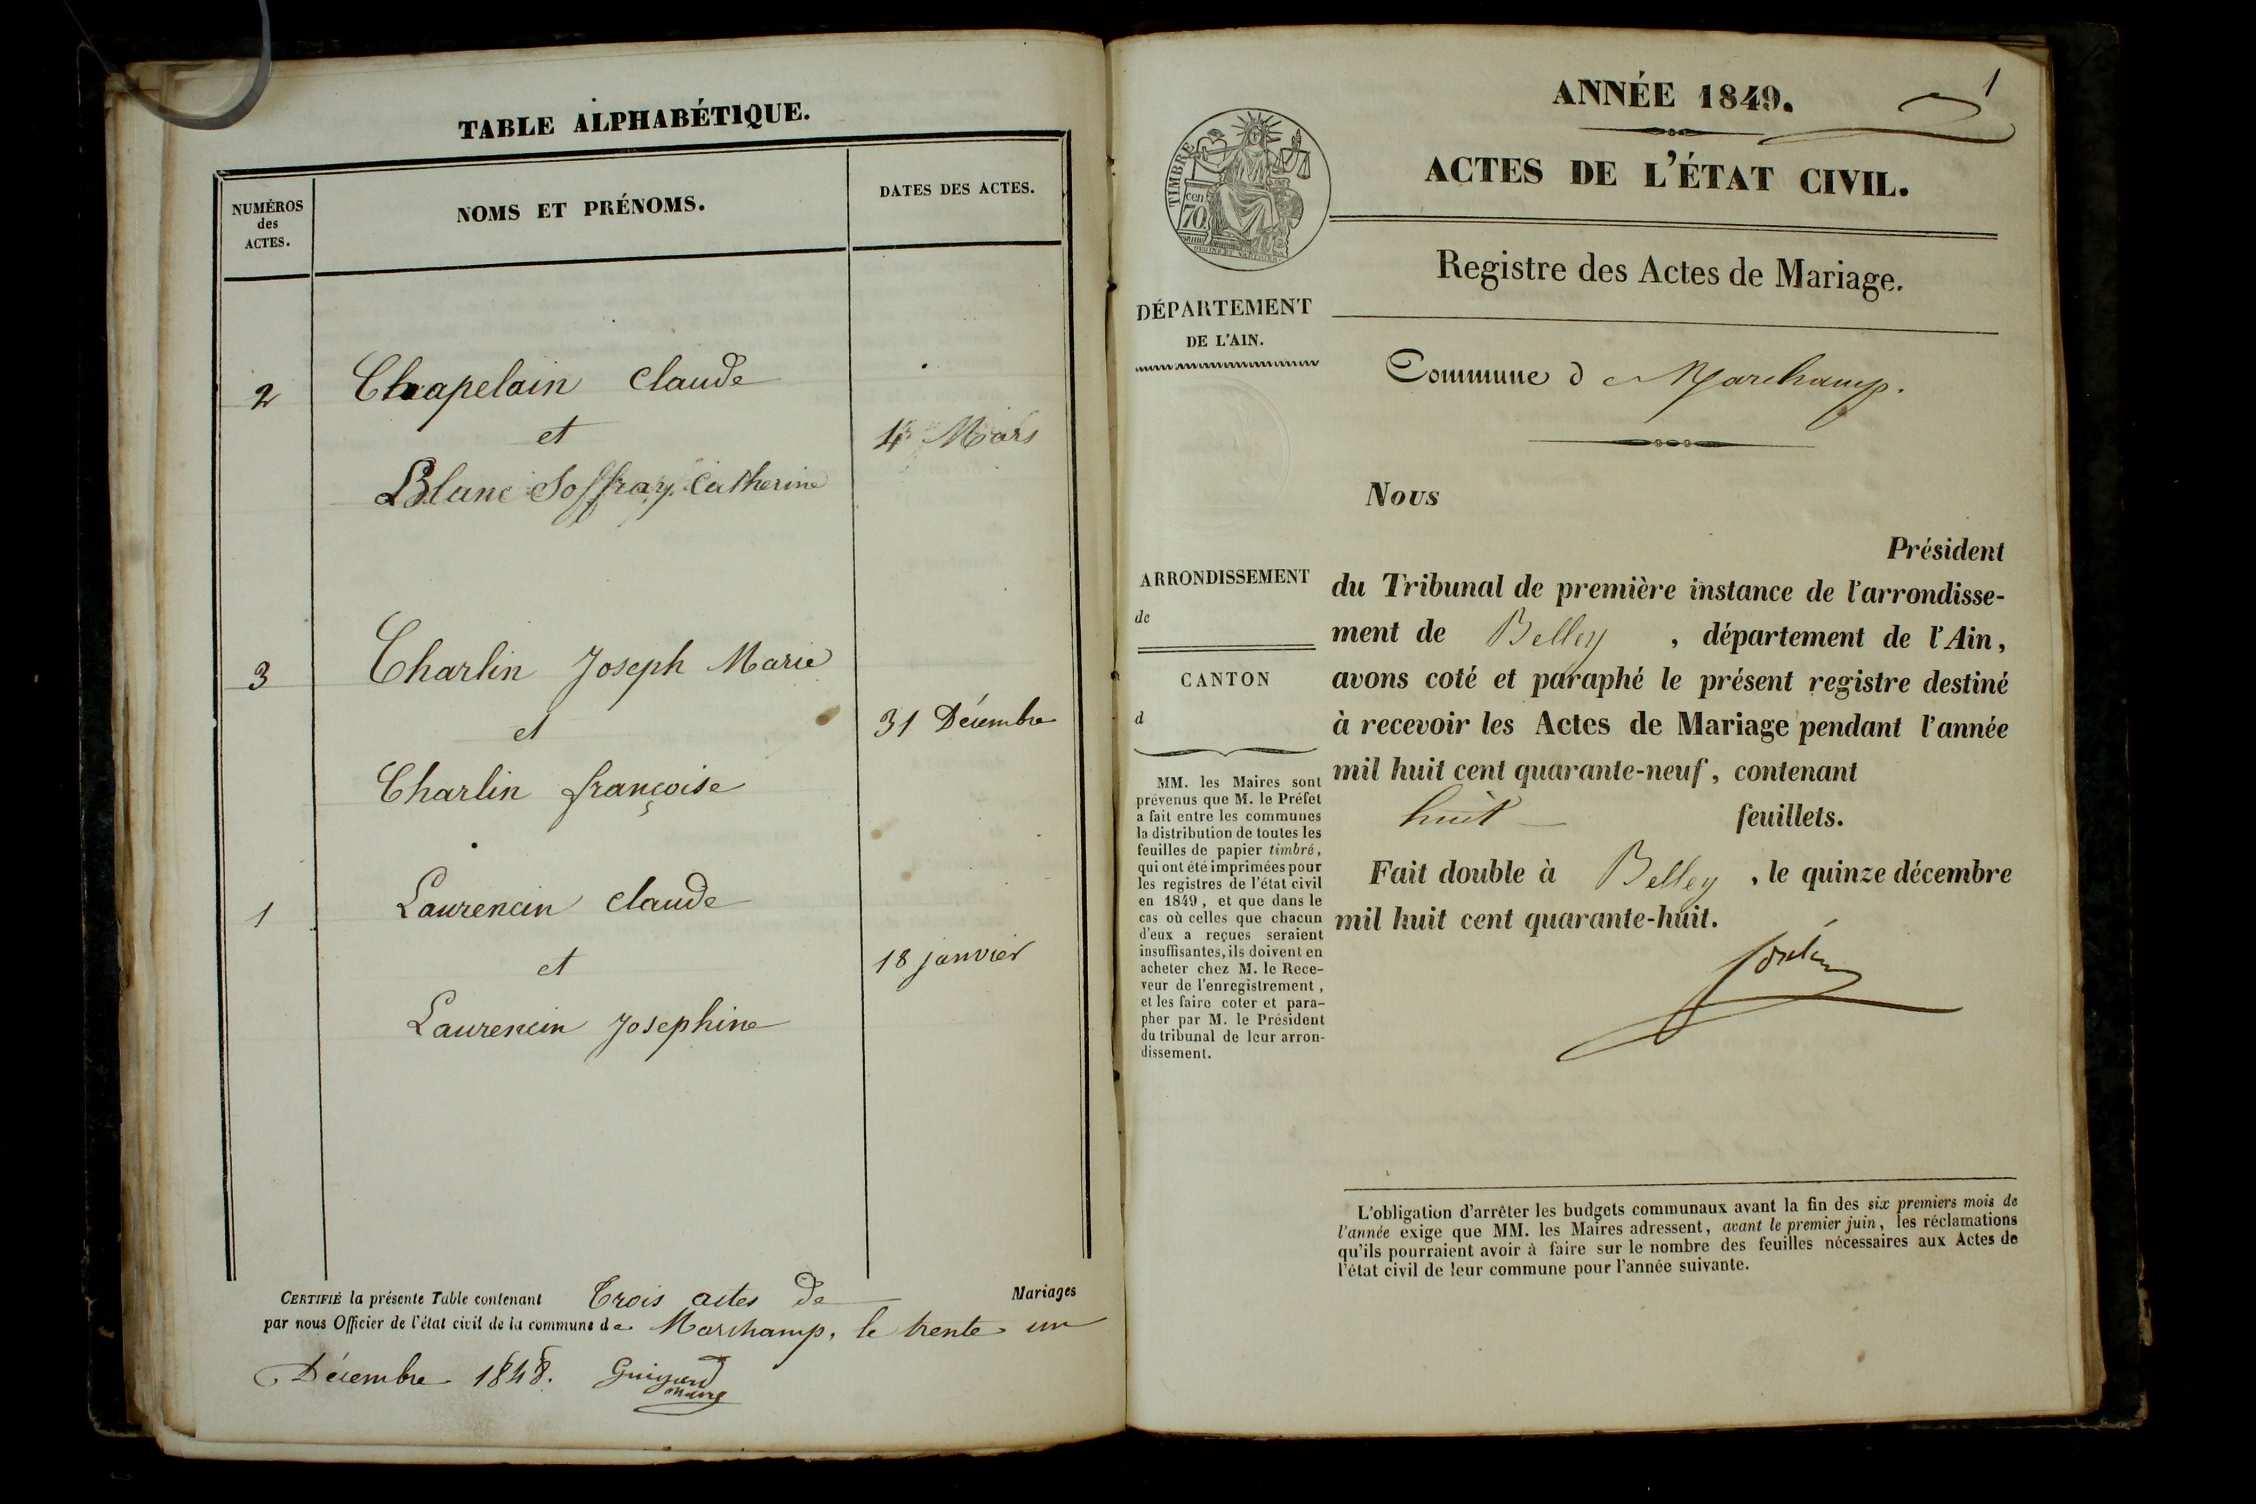 TABLE ALPHABÉTIQUE.
NUMÉROS
des
ACTES.
NOMS ET PRÉNOMS.
DATES DES ACTES.
2
Chapelain Claude
et
4 Mars
Blanc Soffray Catherine
3
Charlin Joseph Marie
et
31 Décembre
Charlin françoise
1
Laurencin Claude
et
18 janvier
Laurencin Josephine
CERTIFIÉ la présente Table contenant Trois actes de Mariages
par nous Officier de l'état civil de la commune de Marchamp, le trente un
Décembre 1848.
maire
1
ANNÉE 1849.
ACTES DE L'ÉTAT CIVIL.
TIMBRE
70
cen
Registre des Actes de Mariage.
DÉPARTEMENT
DE L'AIN.
Commune d Marchamp.
Nous
Président
du Tribunal de première instance de l'arrondisse-
ment de Belley , département de l'Ain,
avons coté et paraphé le présent registre destiné
à recevoir les Actes de Mariage pendant l'année
mil huit cent quarante-neuf, contenant
huit feuillets.
Fait double à Belley , le quinze décembre
mil huit cent quarante-huit.
ARRONDISSEMENT
de
CANTON
d
MM. les Maires sont
prévenus que M. le Préfet
a fait entre les communes
la distribution de toutes les
feuilles de papier timbré,
qui ont été imprimées pour
les registres de l'état civil
en 1849, et que dans le
cas où celles que chacun
d'eux a reçues seraient
insuffisantes, ils doivent en
acheter chez M. le Rece-
veur de l'enregistrement,
et les faire coter et para-
pher par M. le Président
du tribunal de leur arron-
dissement.
L'obligation d'arrêter les budgets communaux avant la fin des six premiers mois de
l'année exige que MM. les Maires adressent, avant le premier juin, les réclamations
qu'ils pourraient avoir à faire sur le nombre des feuilles nécessaires aux Actes de
l'état civil de leur commune pour l'année suivante.